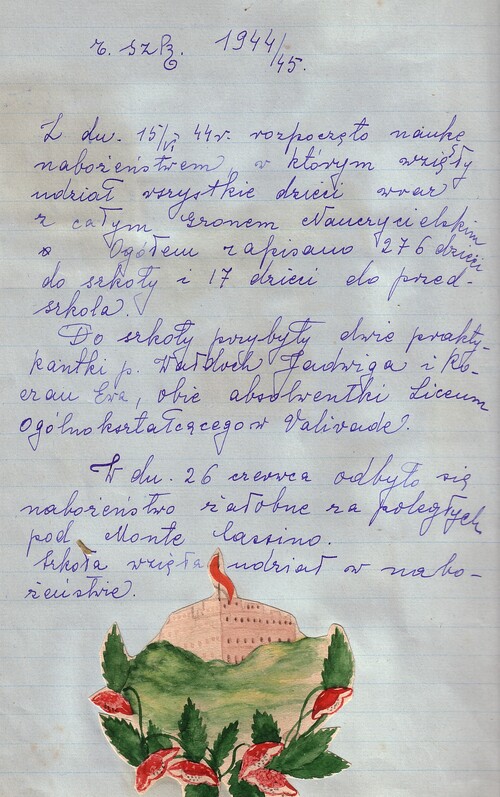 r. szk. 1944/45.
Z dn. 15/VI 44r. rozpoczęto naukę
nabożeństwem, w którym wzięły
udział wszystkie dzieci wraz
z całym Gronem Nauczycielskim
Ogółem zapisano 276 dzieci
do szkoły i 17 dzieci do przed-
szkola.
Do szkoły przybyły dwie prakty-
kantki p. Wałdoch Jadwiga i Ko-
czan Ewa, obie absolwentki Liceum
Ogólnokształcącego w Valivade.
W dn. 26 czerwca odbyło się
nabożeństwo żałobne za poległych
pod Monte Cassino.
Szkoła wzięła udział w nabo-
żeństwie.